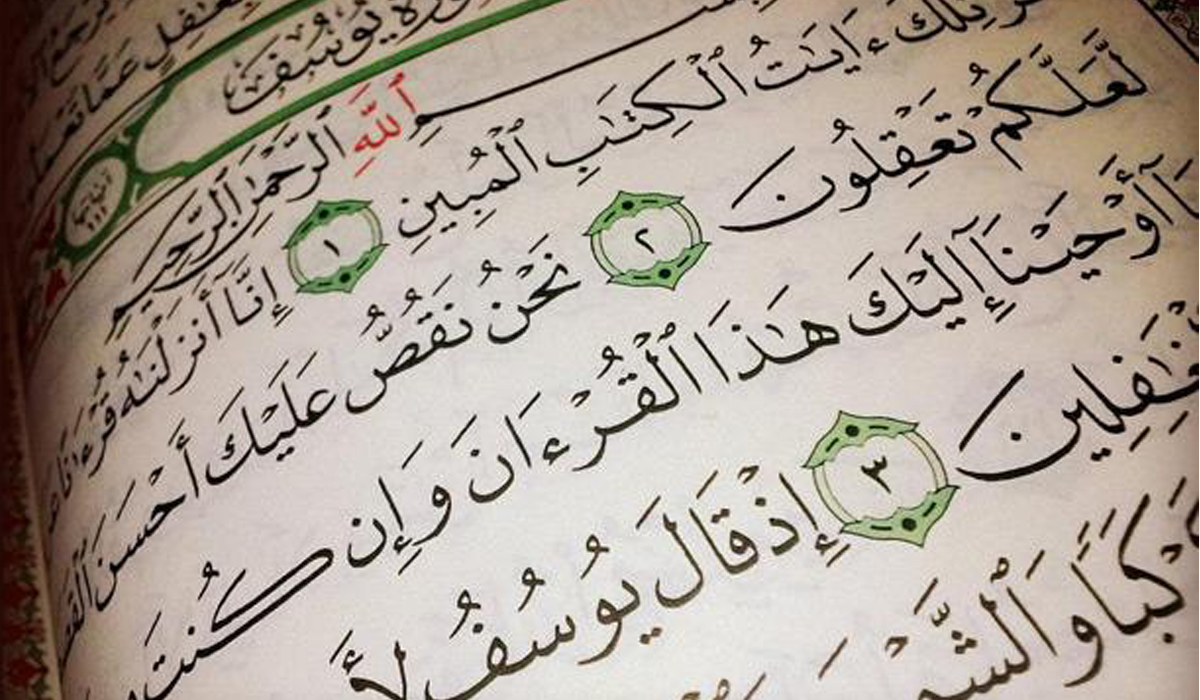 سُورَةُ يُوسُفَ
ٱللَّهِ ٱلرَّحْمَٰنِ ٱلرَّحِيمِ
تِلْكَ ءَايَٰتُ ٱلْكِتَٰبِ ٱلْمُبِينِ ١ إِنَّآ أَنزَلْنَٰهُ قُرْءَٰنًا
لَّعَلَّكُمْ تَعْقِلُونَ ٢ نَحْنُ نَقُصُّ عَلَيْكَ أَحْسَنَ
أَوْحَيْنَآ إِلَيْكَ هَٰذَا ٱلْقُرْءَانَ وَإِن كُنتَ
ٱلْغَٰفِلِينَ ٣ إِذْ قَالَ يُوسُفُ